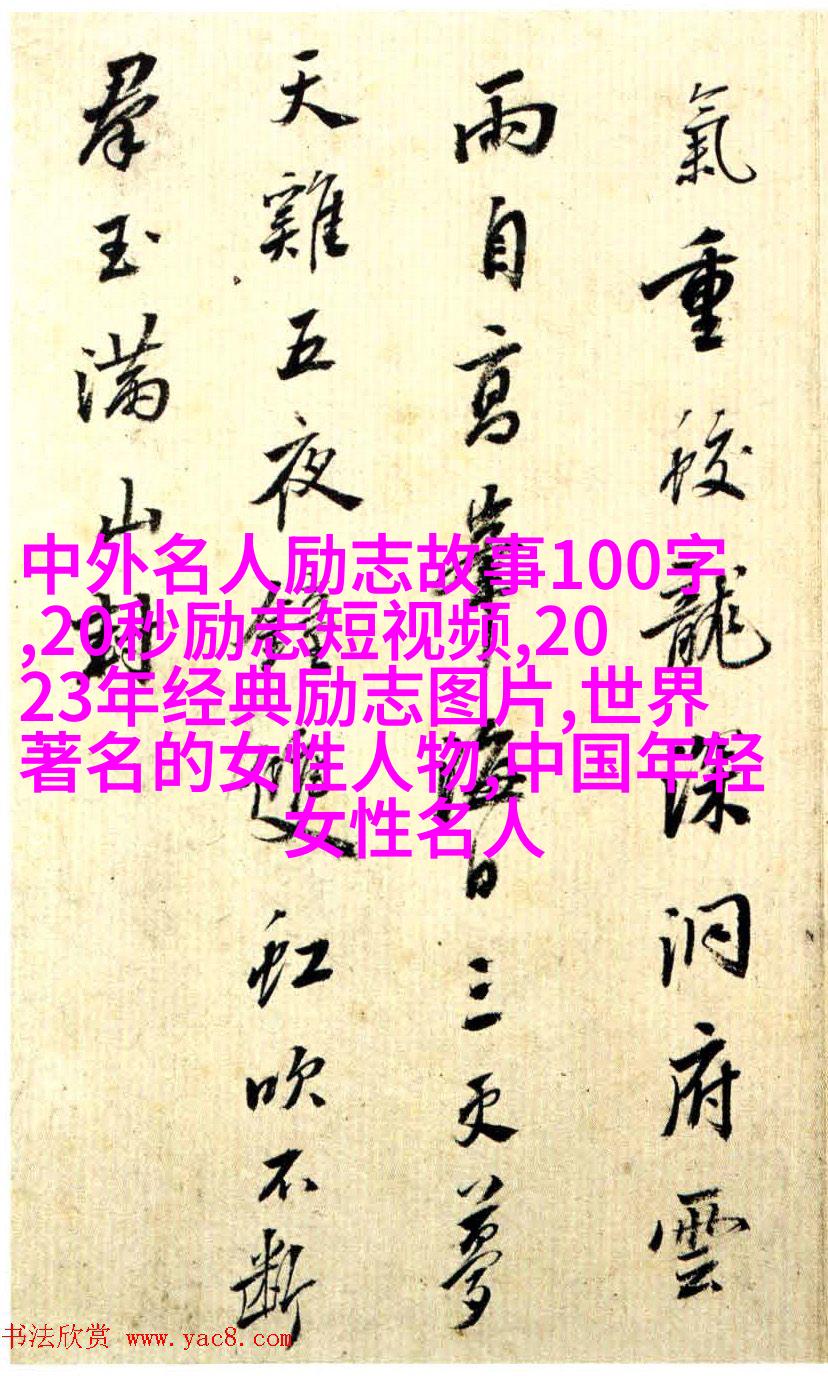 氣重蛟龍深洞府雲
雨自高峯海日三更夢
天雞五夜鐘雙虹吹不斷
羣玉滿山封
中外名人励志故事100字
,20秒励志短视频,20
23年经典励志图片,世界
著名的女性人物,中国年轻
女性名人
书法欣赏 www.yac8.com